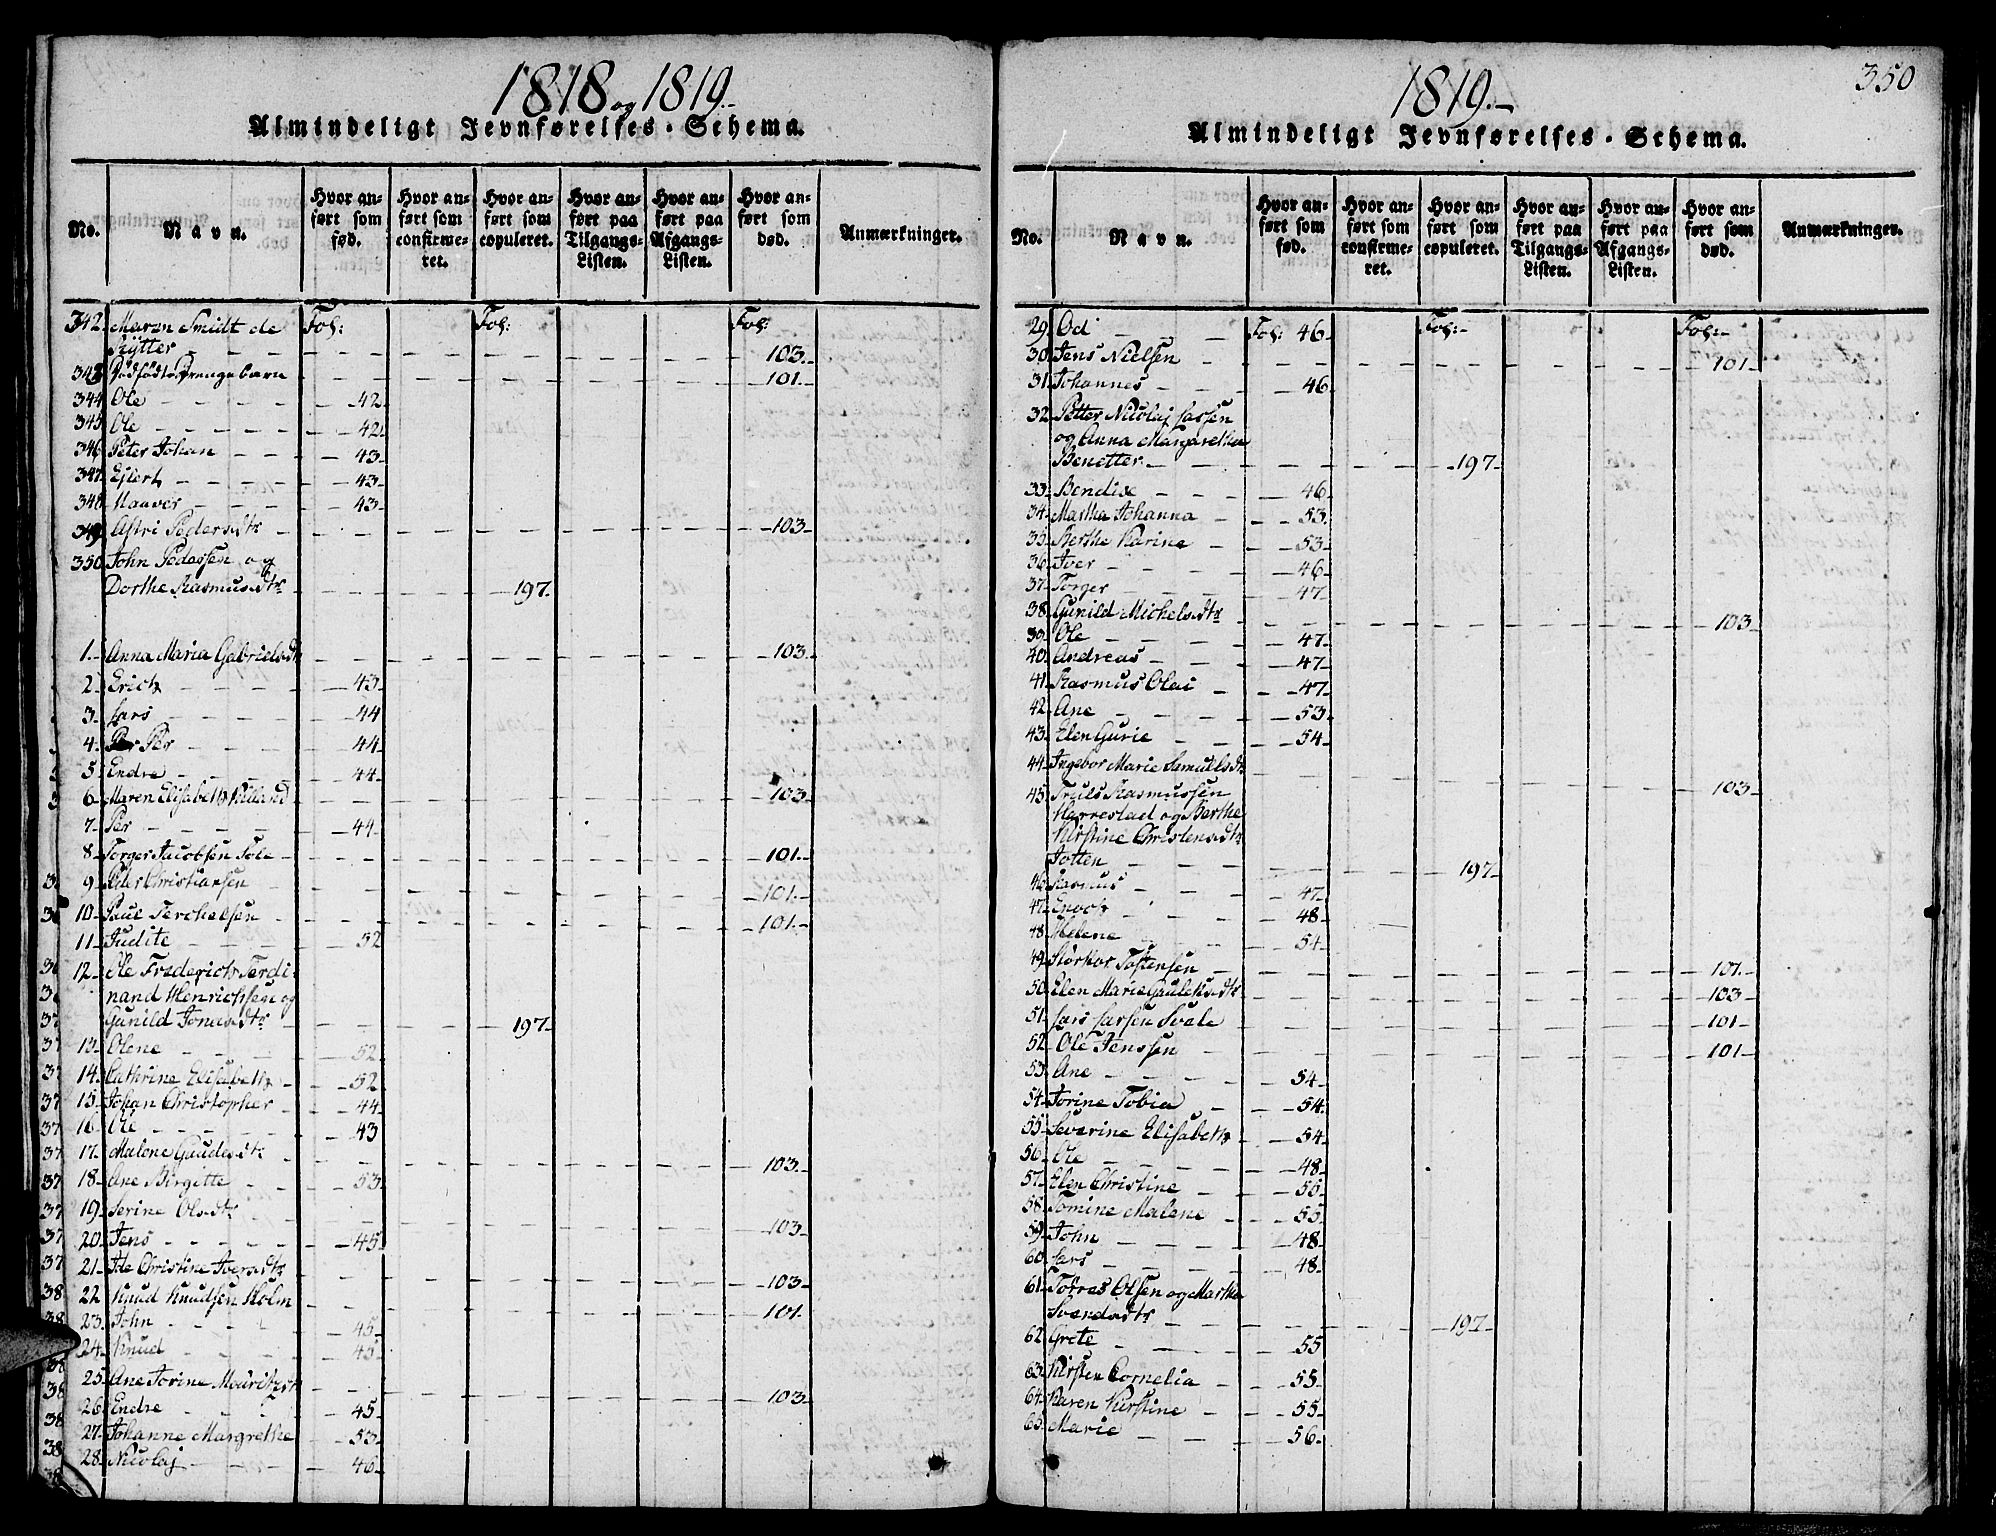 1818 og 1819.-
Almindeligt Jevnførelses-Schema.
No.
Navn.
Hvor anført som fød.
Hvor anført som confirmeret.
Hvor anført som copuleret.
Hvor anført paa Tilgangs-Listen.
Hvor anført paa Afgangs-Listen.
Hvor anført som død.
Anmærkninger.
342. Maren Smidt de Fol: Fol: Fol:
Rÿtter - - - - - - - 103.
343 Dødfødt Drengebarn - - - - - - 101.
344 Ole - - - - 42.
345 Ole - - - - 42.
346 Peter Johan - - - 43.
347. Eilert - - - - 43.
348 Haaver - - - 43.
349 Astri Pedersdtr - - - - - - 103.
350 John Pedersen og
Dorthe Rasmusdtr - - - - 197.
1. Anna Maria Gabrielsdtr - - - - - 103.
2. Erich - - - 43.
3. Lars - - - 44
4. Per - - - 44.
5. Endre - - - 44.
6. Maren Elisabeth Killand - - - - - 103.
7. Per - - - - 44.
8. Torger Jacobsen Sole - - - - - 101.
9. Peder Christiansen - - - - - 101.
10. Poul Terchelsen - - - - - 101.
11. Judite - - - 52
12. Ole Frederich Ferdi-
nand Henrichsen og
Gunild Jonasdtr - - - 197.
13. Olene - - - 52.
14. Cathrine Elisabeth - - 52.
15. Johan Christopher - - 44.
16. Ole - - - 43
17. Malene Gaudesdtr - - - - - 103.
18. Ane Birgitte - - - 53.
19. Serine Olsdtr - - - - - 103.
20. Jens - - - - 45.
21. Ide Christine Iversdtr - - - - - 103.
22. Knud Knudsen Holm - - - - - 101.
23. John - - - 45.
24. Knud - - - 45.
25. Ane Torine Mouritzdtr - - - - - 103.
26. Endre - - - 45.
27. Johanne Margrethe - - 53.
28. Nicolaj - - - 46.
1819.-
350
Almindeligt Jevnførelses-Schema.
No.
Navn.
Hvor anført som fød.
Hvor anført som confirmeret.
Hvor anført som copuleret.
Hvor anført paa Tilgangs-Listen.
Hvor anført paa Afgangs-Listen.
Hvor anført som død.
Anmærkninger.
29. Od - - Fol: 46. Fol:- Fol:-
30. Jens Nielsen - - - - - - 101.
31. Johannes - - - 46
32. Petter Nicolaj Lassen
og Anna Margaretha
Benetter. - - - - 197.
33. Bendix - - - 46.
34. Martha Johanna - - 53.
35. Berthe Karine - - 53.
36. Iver - - - 46.
37. Torger - - - 47.
38. Gunild Michelsdtr - - - - - 103.
39. Ole - - - 47.
40. Andreas - - - 47.
41. Rasmus Olai - - 47.
42. Ane - - - 53.
43. Elen Gurie - - 54.
44. Ingebor Marie Samuelsdtr - - - - - 103.
45. Truls Rasmussen
Harrestad og Berthe
Kirstine Christensdtr
Totten - - - - 197.
46. Rasmus - - - 47.
47. Enoch - - - 48.
48. Helene - - - 54.
49. Størkor Tostensen - - - - - 101.
50. Elen Marie Gauletsdtr - - - - - 103
51. Lars Larsen Svale - - - - - 101.
52. Ole Jenssen - - - - - 101.
53. Ane - - - 54.
54. Torine Tobia - - 54.
55. Severine Elisabeth - - 54.
56. Ole - - - 48.
57. Elen Christine - - 55.
58. Tomine Malene - - 55.
59. John - - - 48.
60. Lars - - - 48.
61. Torres Olsen og Martha
Svendsdtr - - - 197.
62. Grete - - - 55
63. Kirsten Cornelia - - 55.
64. Karen Kirstine - - 55.
65. Marie - - - 56.